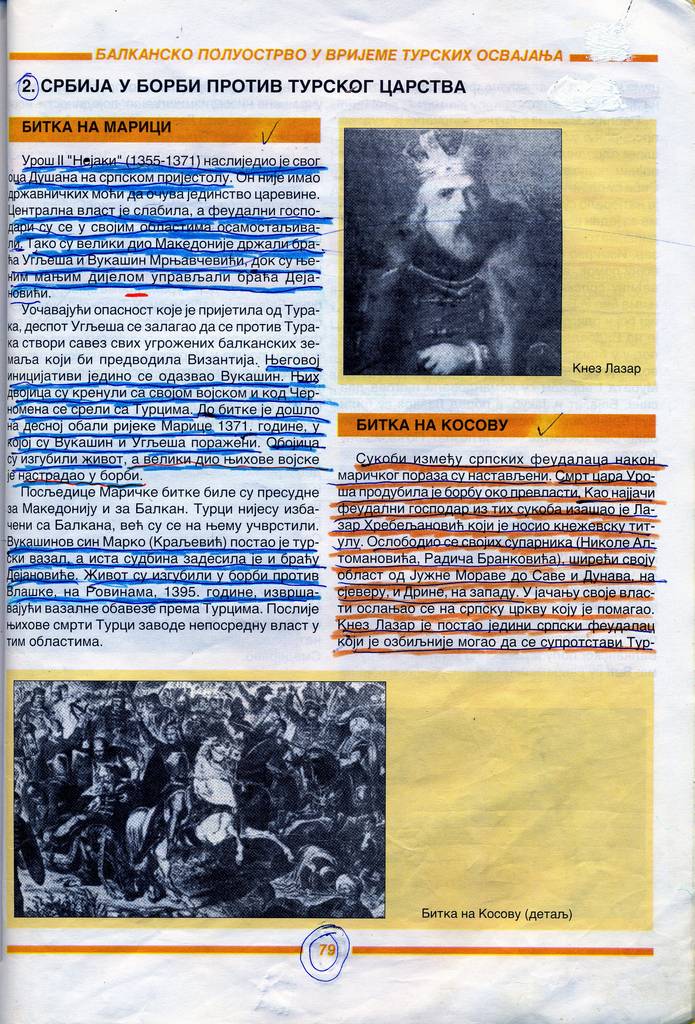 БАЛКАНСКО ПОЛУОСТРВО У ВРИЈЕМЕ ТУРСКИХ ОСВАЈАЊА
2. СРБИЈА У БОРБИ ПРОТИВ ТУРСКОГ ЦАРСТВА
БИТКА НА МАРИЦИ
Урош II "Нејаки" (1355-1371) наслиједио је свог
оца Душана на српском пријестолу. Он није имао
државничких моћи да очува јединство царевине.
Централна власт је слабила, а феудални госпо-
дари су се у својим областима осамостаљива-
ли. Тако су велики дио Македоније држали бра-
ћа Угљеша и Вукашин Мрњавчевићи, док су ње-
ним мањим дијелом управљали браћа Деја-
новићи.
Уочавајући опасност које је пријетила од Тура-
ка, деспот Угљеша се залагао да се против Тура-
ка створи савез свих угрожених балканских зе-
маља који би предводила Византија. Његовој
иницијативи једино се одазвао Вукашин. Њих
двојица су кренули са својом војском и код Чер-
номена се срели са Турцима. До битке је дошло
на десној обали ријеке Марице 1371. године, у
којој су Вукашин и Угљеша поражени. Обојица
су изгубили живот, а велики дио њихове војске
је настрадао у борби.
Посљедице Маричке битке биле су пресудне
за Македонију и за Балкан. Турци нијесу изба-
чени са Балкана, већ су се на њему учврстили.
Вукашинов син Марко (Краљевић) постао је тур-
ски вазал, а иста судбина задесила је и браћу
Дејановиће. Живот су изгубили у борби против
Влашке, на Ровинама, 1395. године, изврша-
вајући вазалне обавезе према Турцима. Послије
њихове смрти Турци заводе непосредну власт у
тим областима.
Кнез Лазар
БИТКА НА КОСОВУ
Сукоби између српских феудалаца након
маричког пораза су настављени. Смрт цара Уро-
ша продубила је борбу око превласти. Као најјачи
феудални господар из тих сукоба изашао је Ла-
зар Хребељановић који је носио кнежевску тит-
улу. Ослободио се својих супарника (Николе Ал-
томановића, Радича Бранковића), ширећи своју
област од Јужне Мораве до Саве и Дунава, на
сјеверу, и Дрине, на западу. У јачању своје влас-
ти ослањао се на српску цркву коју је помагао.
Кнез Лазар је постао једини српски феудалац
који је озбиљније могао да се супротстави Тур-
Битка на Косову (детаљ)
79